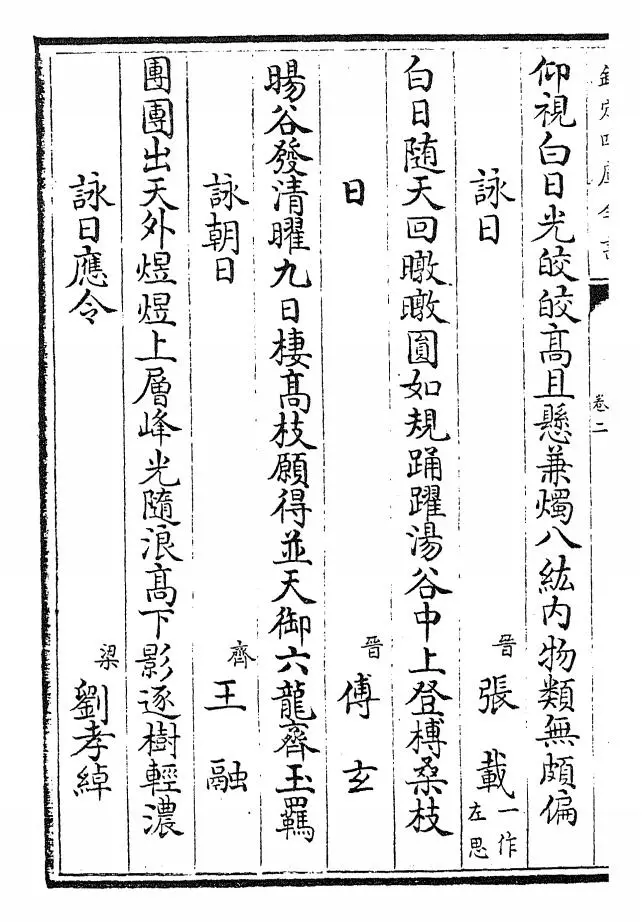 欽定四庫全書
卷二
仰視白日光皎皎高且懸兼燭八紘内物類無頗偏
詠日　晉張載一作左思
白日随天回暾暾圓如規踊躍湯谷中上登榑桑枝
日　晉傅玄
暘谷發清曜九日棲高枝願得並天御六龍齊玉羈
詠朝日　齊王融
團團出天外煜煜上層峰光隨浪高下影逐樹輕濃
詠日應令　梁劉孝綽